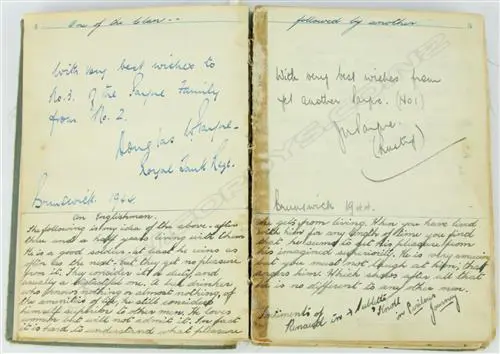 One of the Clan --
With very best wishes to
No. 3. of the Payne Family
from No. 2.
Douglas W Payne -
Royal Tank Regt.
Brunswick. 1944.
An Englishman.
The following is my idea of the above, after
three and a half years living with them
He is a good soldier, at least he ruins as
after as the rest but they get no pleasure
from it. They consider it a duty, and
usually a distasteful one. A but drinker
who knows nothing, almost nothing, of
the amenities of life, he still considers
himself superior to other men. He loves
women but will not admit it. In fact
it is hard to understand what pleasure
followed by another
With very best wishes from
yet another Payne. (No 1)
Payne.
(Austral)
Brunswick 1944.
he gets from living. When you have lived
with him for any length of time you find
that he seems to get his pleasure from
his imagined superiority. He is very amusing
but you must not laugh at him, that
angers him. Which shows after all that
he is no different to any other man.
Sentiments of
in